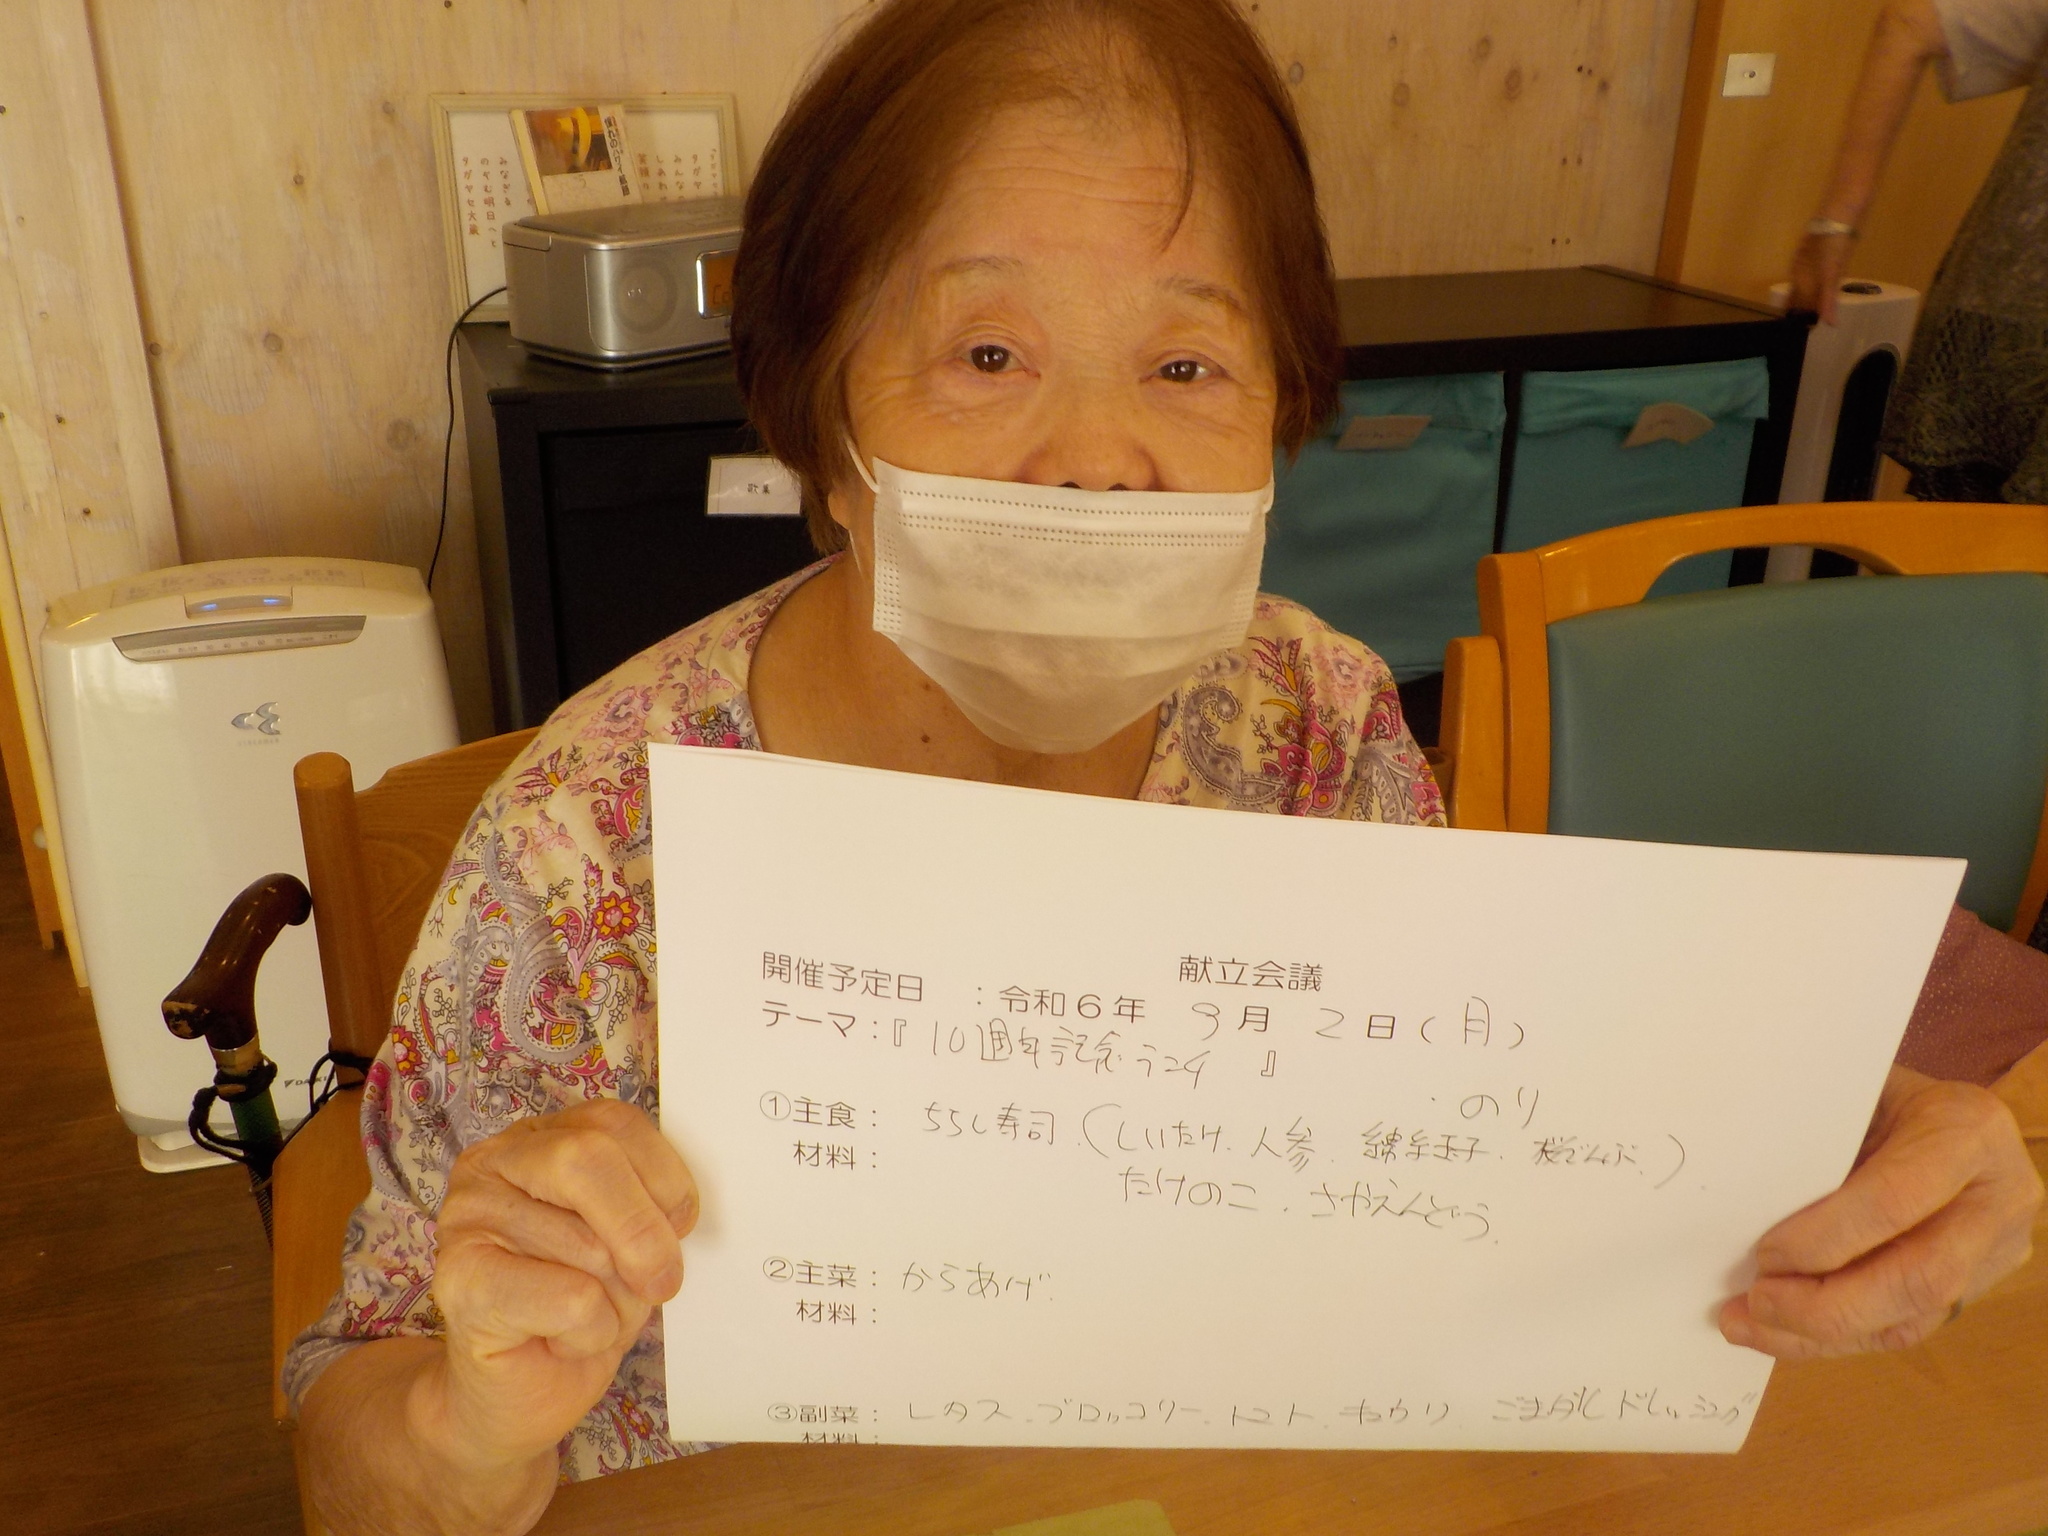 みなぎる
のぞむ明日へと
タガヤセ大蔵
献立会議
開催予定日 ：令和6年 9月 2日(月)
テーマ：『10周年記念ランチ 』
・のり
①主食： ちらし寿司.(しいたけ. 人参. 錦糸玉子. 桜でんぶ.)
材料：
たけのこ. さやえんどう.
②主菜： からあげ.
材料：
③副菜： レタス. ブロッコリー. トマト. キュウリ. ごまだしドレッシング
材料：